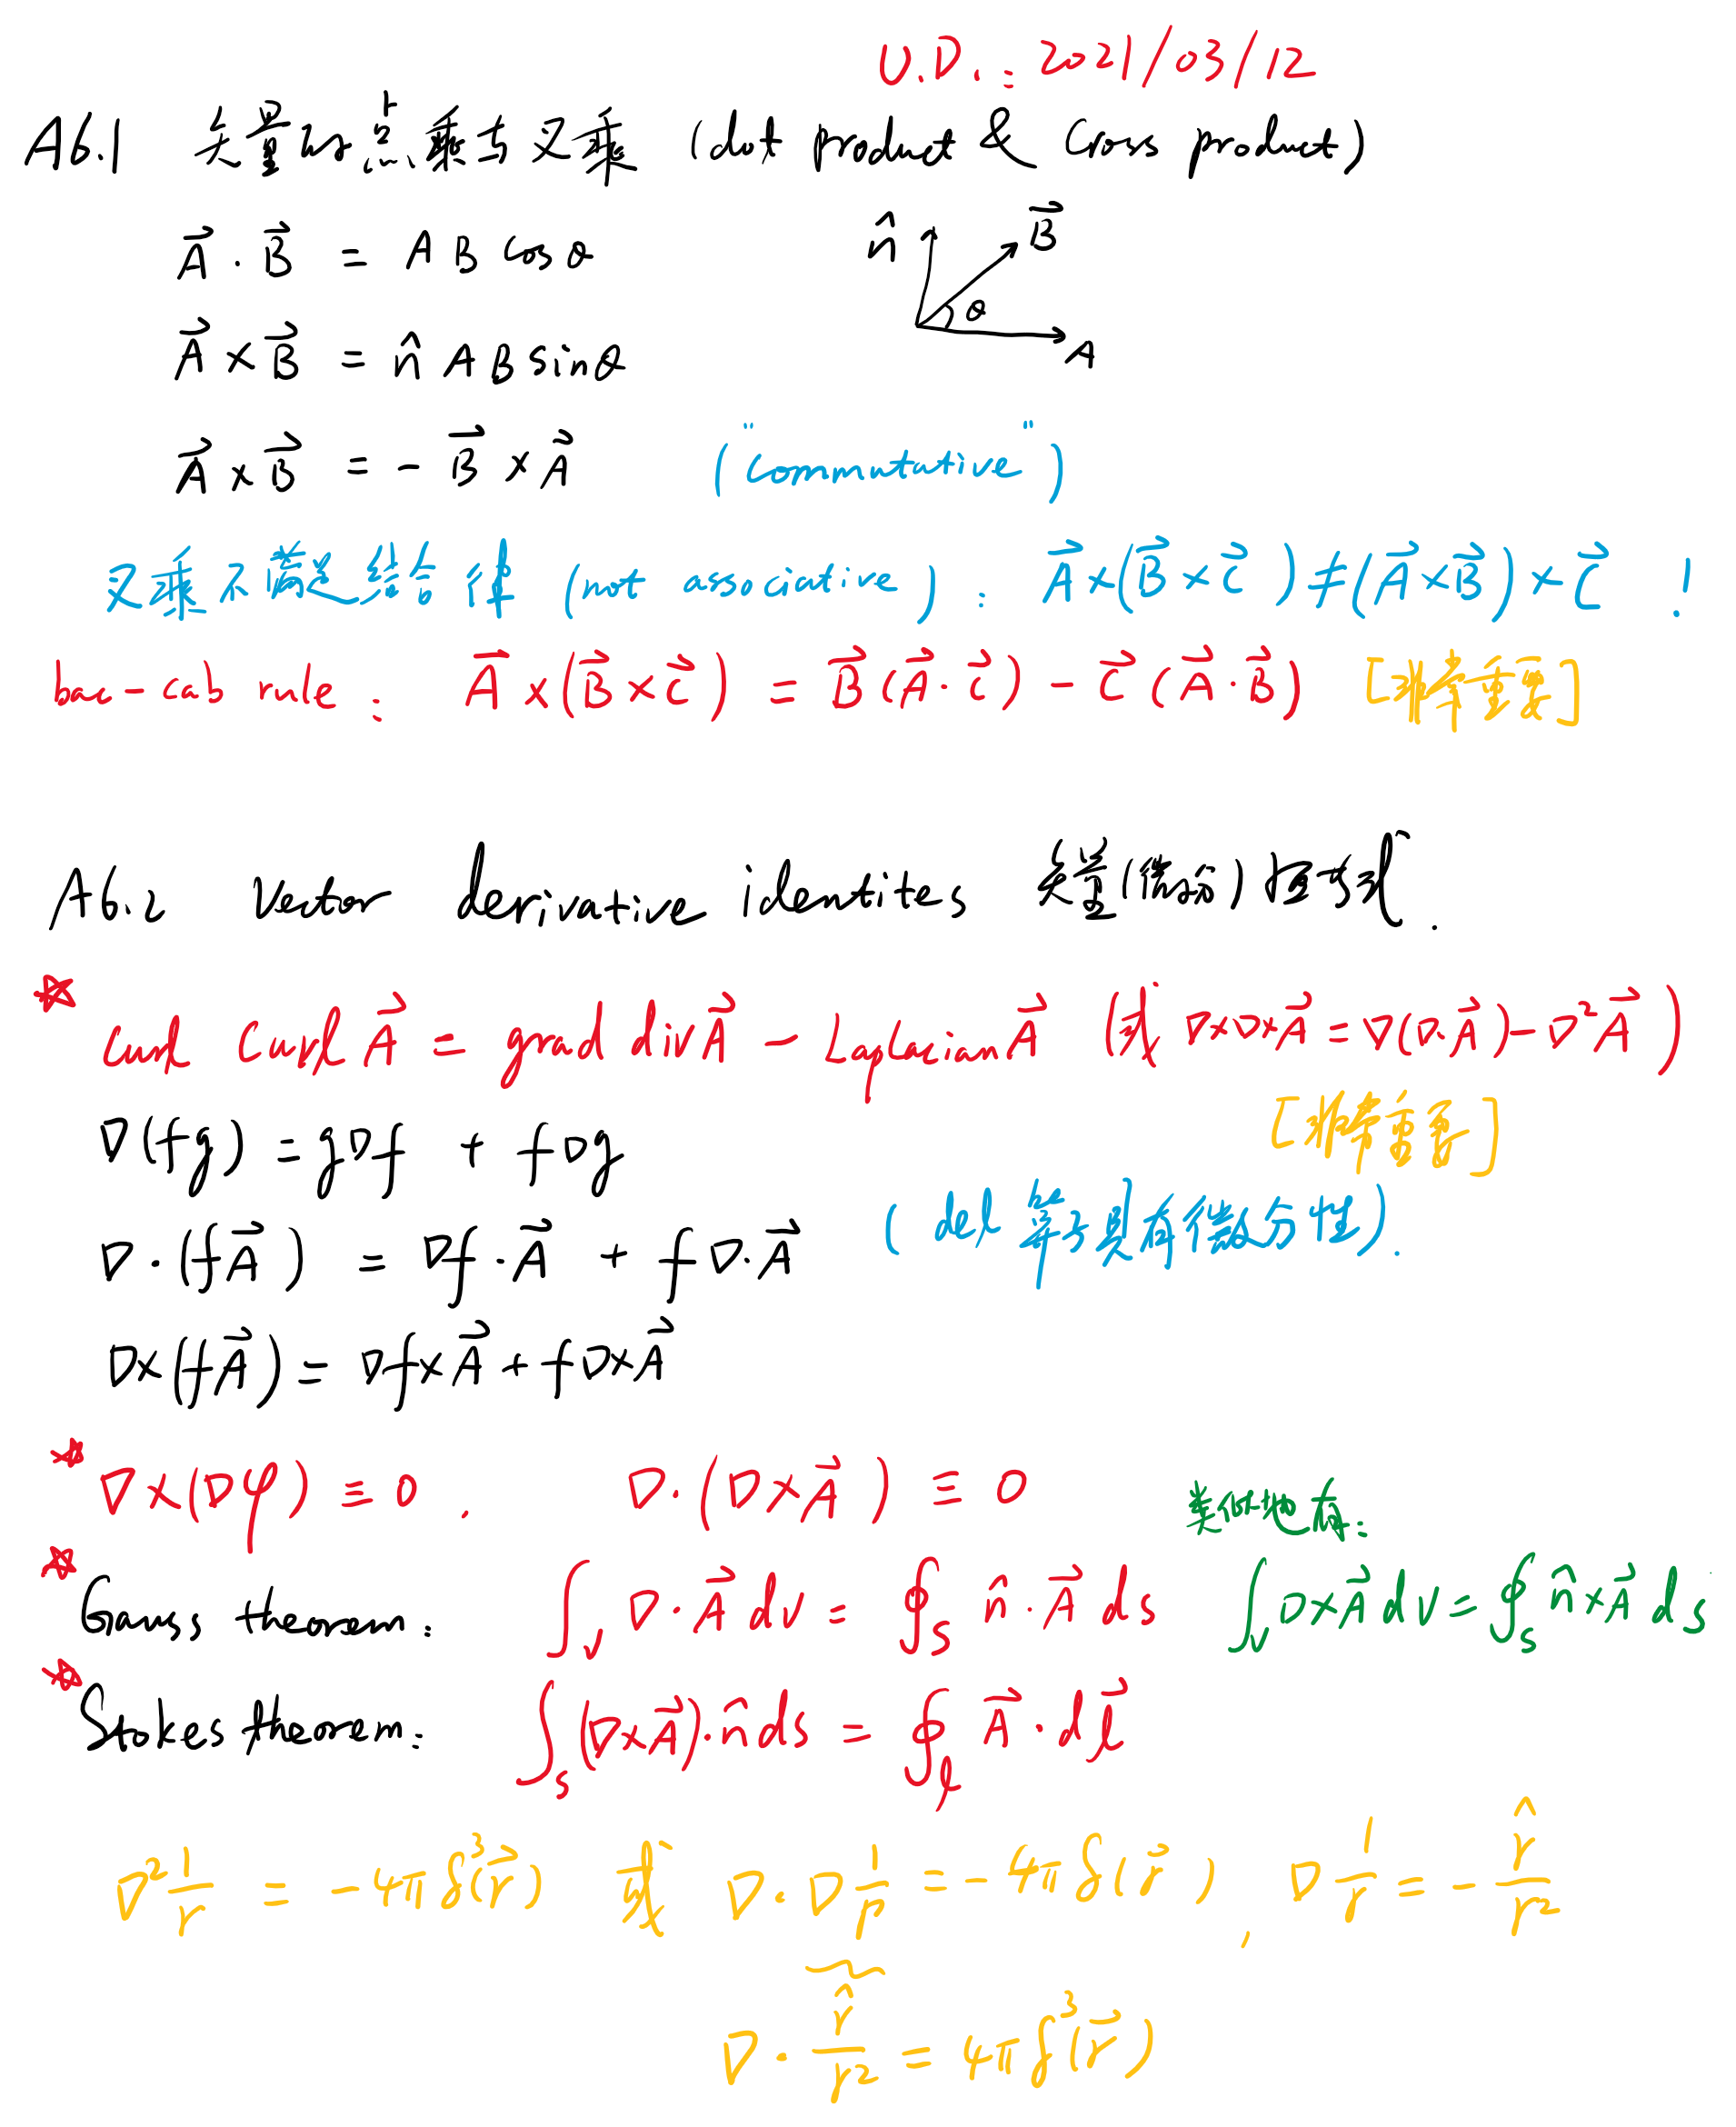 U.D.: 2021/03/12
A6.1 矢量的点乘与叉乘 (dot product & Cross product)
$\vec{A} \cdot \vec{B} = AB\cos\theta$
$\hat{n}$ $\vec{B}$ θ A
$\vec{A} \times \vec{B} = \hat{n} AB\sin\theta$
$\vec{A} \times \vec{B} = -\vec{B} \times \vec{A}$ ("commutative")
叉乘不满足结合律 (not associative): $\vec{A} \times (\vec{B} \times \vec{C}) \neq (\vec{A} \times \vec{B}) \times \vec{C}$ !
bac-cab rule: $\vec{A} \times (\vec{B} \times \vec{C}) = \vec{B}(\vec{A} \cdot \vec{C}) - \vec{C}(\vec{A} \cdot \vec{B})$ [非常重要]
A6.2 Vector derivative identites 矢量(微分)恒等式.
☆ Curl Curl $\vec{A}$ = grad div $\vec{A}$ - Laplacian $\vec{A}$ (或 $\nabla \times \nabla \times \vec{A} = \nabla(\nabla \cdot \vec{A}) - \nabla^2 \vec{A}$)
[非常重要]
$\nabla(fg) = g\nabla f + f\nabla g$
(del 算子具有微分性).
$\nabla \cdot (f\vec{A}) = \nabla f \cdot \vec{A} + f\nabla \cdot \vec{A}$
$\nabla \times (f\vec{A}) = \nabla f \times \vec{A} + f\nabla \times \vec{A}$
☆ $\nabla \times (\nabla \varphi) \equiv 0$. $\nabla \cdot (\nabla \times \vec{A}) \equiv 0$
类似地有:
☆ Gauss theorem: $\int_V \nabla \cdot \vec{A} dV = \oint_S \hat{n} \cdot \vec{A} ds$ $\int_V \nabla \times \vec{A} dV = \oint_S \hat{n} \times \vec{A} ds$
☆ Stokes theorem: $\int_S (\nabla \times \vec{A}) \cdot \hat{n} ds = \oint_l \vec{A} \cdot d\vec{l}$
$\nabla^2 \frac{1}{r} = -4\pi \delta^3(\vec{r})$ 或 $\nabla \cdot \nabla \frac{1}{r} = -4\pi \delta(\vec{r})$, $\nabla \frac{1}{r} = -\frac{\hat{r}}{r^2}$
$\nabla \cdot \frac{\hat{r}}{r^2} = 4\pi \delta^3(\vec{r})$